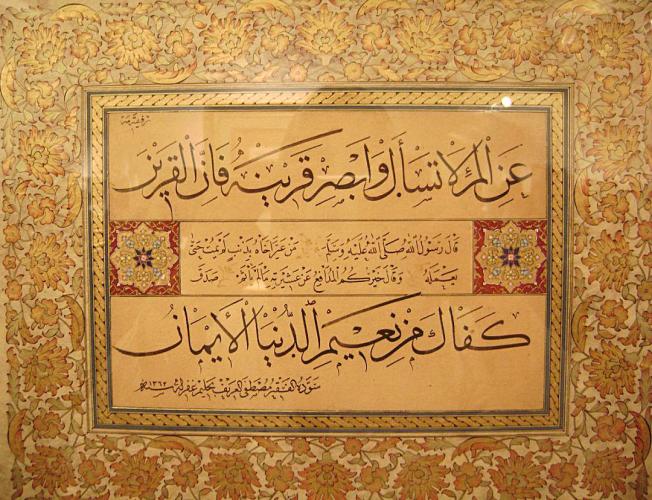 عن المرء لا تسأل وابصر قرينه فان القرين
قال رسول الله صلى الله عليه وسلم من عير اخاه بذنب لم يمت حتى
يعمله وقال خيركم المدافع عن عشيرته ما لم يأثم صدق
كفاك من نعيم الدنيا الايمان
سوده الفقير مصطفى العريف بحليم غفر له سنه ١٣٦٢